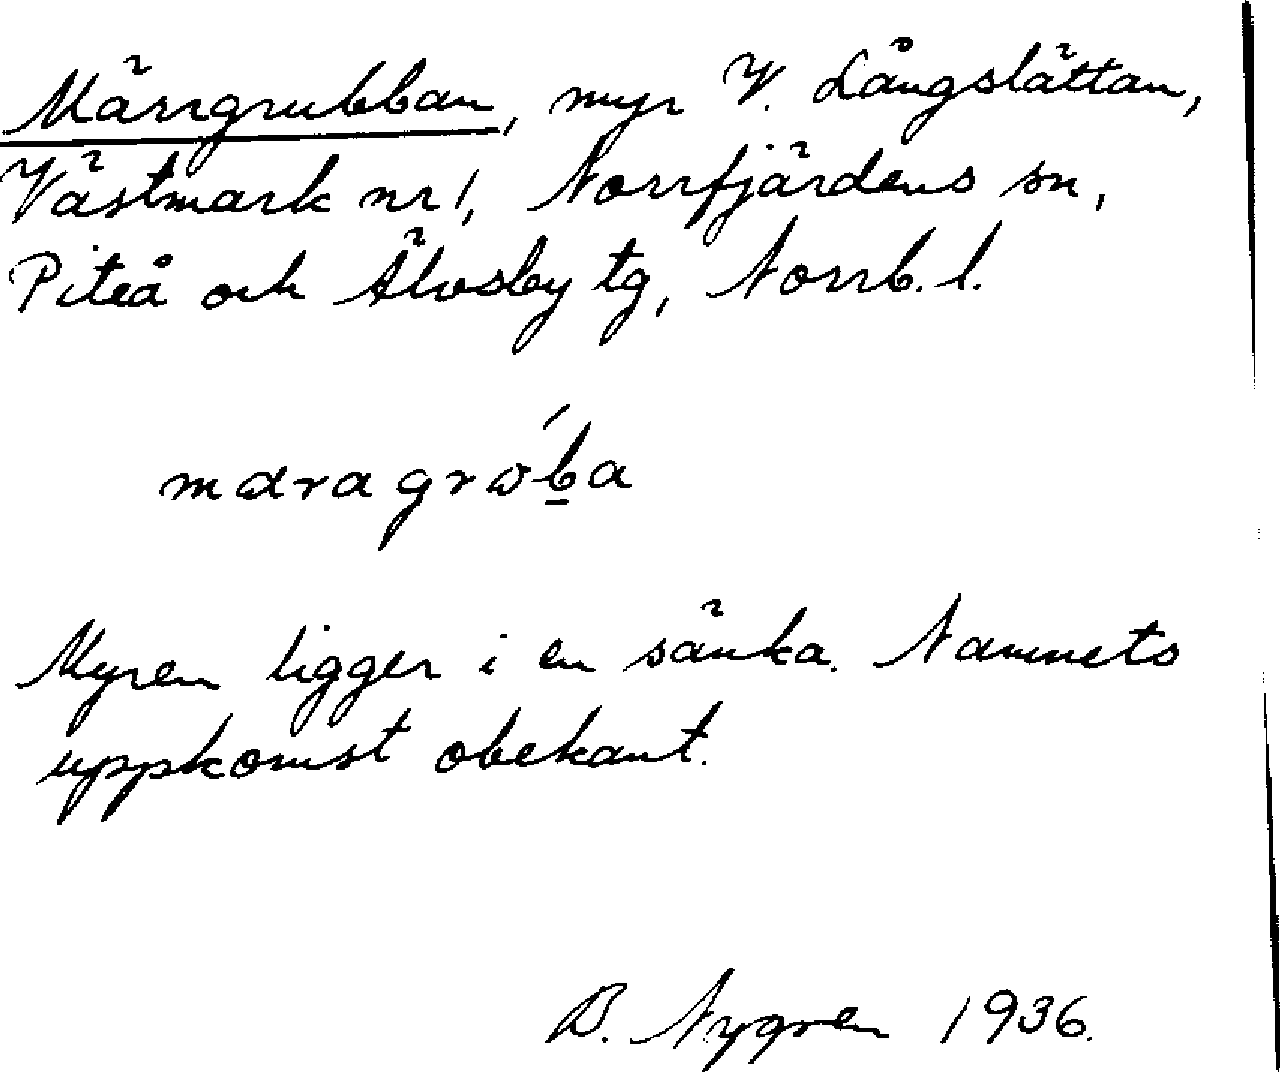 Märrgrubban, myr V. Långslättan,
Västmark nr 1, Norrfjärdens sn,
Piteå och Älvsby tg, Norrb. l.
mαragrώb̲a
Myren ligger i en sänka. Namnets
uppkomst obekant.
B. Nygren 1936.